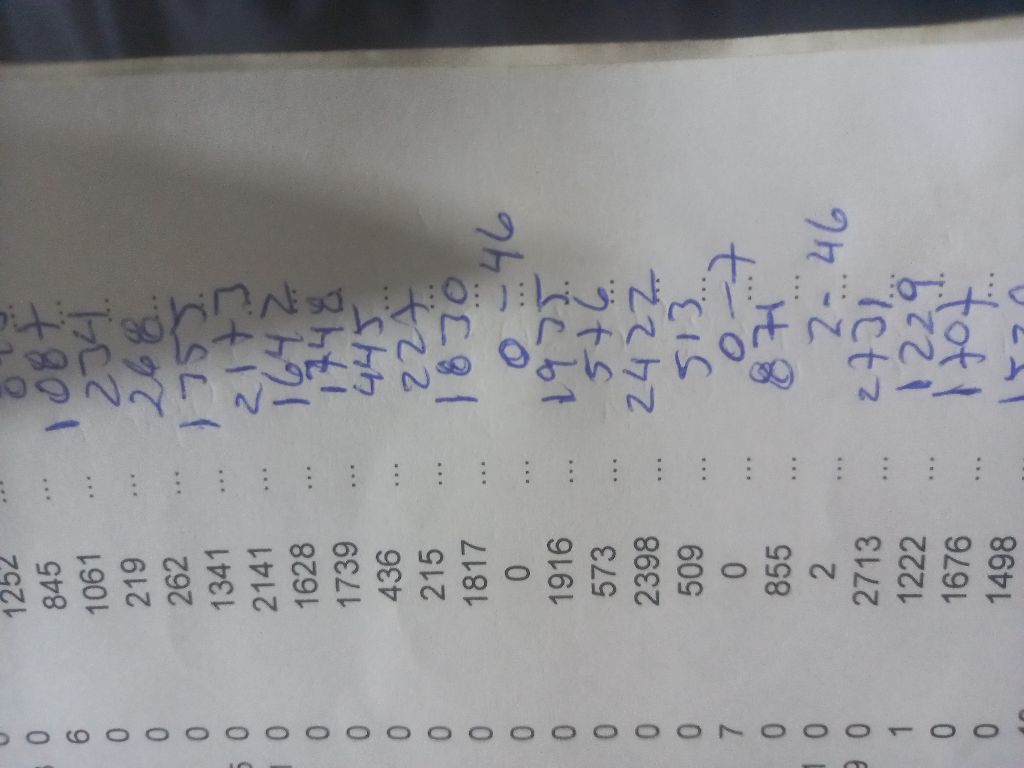 1252 ...
0 845 ...
6 1061 ... 1087
0 219 ... 234
0 262 ... 268
0 1341 ... 1355
0 2141 ... 2173
0 1628 ... 1642
0 1739 ... 1748
0 436 ... 445
0 215 ... 227
0 1817 ... 1830
0 0 ... 0-46
0 1916 ... 1935
0 573 ... 576
0 2398 ... 2422
0 509 ... 513
7 0 ... 0-7
0 855 ... 871
0 2 ... 2-46
0 2713 ... 2731
1 1222 ... 1229
0 1676 ... 1707
0 1498